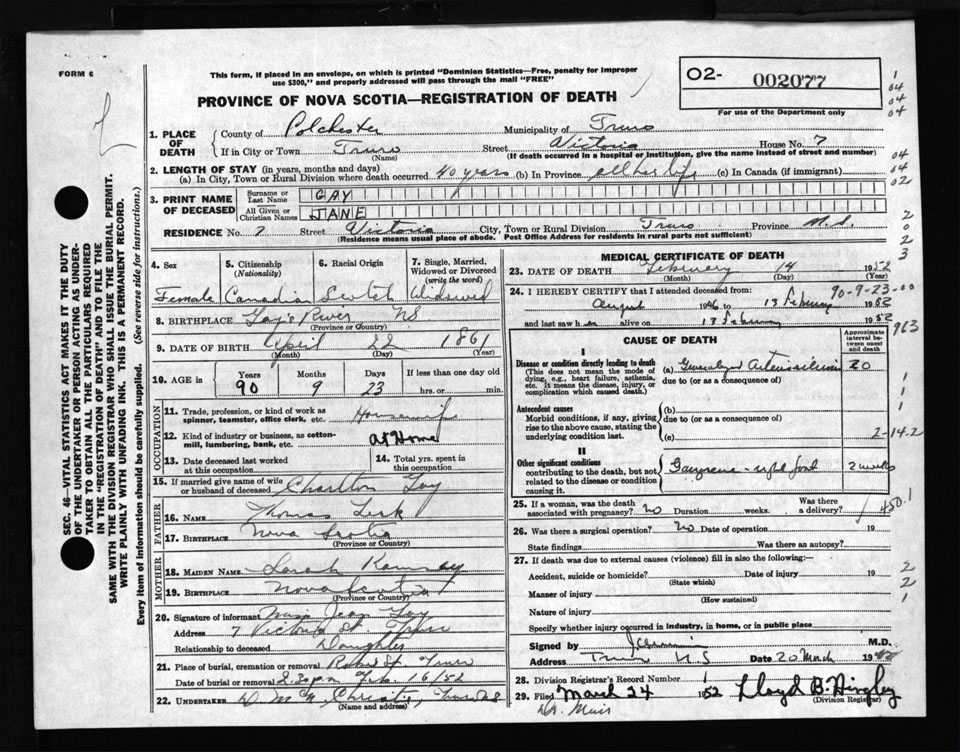 FORM 6
This form, if placed in an envelope, on which is printed "Dominion Statistics—Free, penalty for improper
use $300," and properly addressed will pass through the mail "FREE"
O2- 002077
For use of the Department only
PROVINCE OF NOVA SCOTIA—REGISTRATION OF DEATH
1. PLACE OF DEATH
County of Colchester Municipality of Truro
If in City or Town Truro Street Victoria House No. 7
(Name) (If death occurred in a hospital or institution, give the name instead of street and number)
2. LENGTH OF STAY (in years, months and days)
(a) In City, Town or Rural Division where death occurred 40 years (b) In Province all her life (c) In Canada (if immigrant)
3. PRINT NAME OF DECEASED
Surname or Last Name GAY
All Given or Christian Names JANE
RESIDENCE No. 7 Street Victoria City, Town or Rural Division Truro Province N.S.
(Residence means usual place of abode. Post Office Address for residents in rural parts not sufficient)
4. Sex
Female
5. Citizenship
(Nationality)
Canadian
6. Racial Origin
Scotch
7. Single, Married,
Widowed or Divorced
(write the word)
Widowed
8. BIRTHPLACE Gay's River NS
(Province or Country)
9. DATE OF BIRTH April 22 1861
(Month) (Day) (Year)
10. AGE in
Years Months Days If less than one day old
90 9 23 hrs. or min.
OCCUPATION
11. Trade, profession, or kind of work as
spinner, teamster, office clerk, etc. Housewife
12. Kind of industry or business, as cotton-
mill, lumbering, bank, etc. at Home
13. Date deceased last worked
at this occupation
14. Total yrs. spent in
this occupation
15. If married give name of wife
or husband of deceased Charlton Gay
FATHER
16. NAME Thomas
17. BIRTHPLACE Nova Scotia
(Province or Country)
MOTHER
18. MAIDEN NAME Sarah Ramsay
19. BIRTHPLACE Nova Scotia
(Province or Country)
20. Signature of informant Miss Jean Gay
Address 7 Victoria St. Truro
Relationship to deceased Daughter
21. Place of burial, cremation or removal Robie St. Truro
Date of burial or removal 2.30 p.m. Feb. 16/52
22. UNDERTAKER
(Name and address)
MEDICAL CERTIFICATE OF DEATH
23. DATE OF DEATH February 14 1952
(Month) (Day) (Year)
24. I HEREBY CERTIFY that I attended deceased from:
90-9-23-00
August 1946 to 13 February 1952
and last saw h alive on 13 February 1952
963
CAUSE OF DEATH
Approximate
interval be-
tween onset
and death
I
Disease or condition directly leading to death
(This does not mean the mode of
dying, e.g., heart failure, asthenia,
etc. It means the disease, injury, or
complication which caused death.)
(a) Generalized Arteriosclerosis 20
due to (or as a consequence of)
Antecedent causes
Morbid conditions, if any, giving
rise to the above cause, stating the
underlying condition last.
(b)
due to (or as a consequence of)
(c)
2-14.2
II
Other significant conditions
contributing to the death, but not
related to the disease or condition
causing it.
Gangrene - right foot 2 weeks
25. If a woman, was the death
associated with pregnancy? No Duration weeks. Was there
a delivery?
450.1
26. Was there a surgical operation? No Date of operation 19
State findings Was there an autopsy?
27. If death was due to external causes (violence) fill in also the following:—
Accident, suicide or homicide? Date of injury 19
(State which)
Manner of injury
(How sustained)
Nature of injury
Specify whether injury occurred in industry, in home, or in public place
Signed by M.D.
Address Truro N S Date 20 March 1952
28. Division Registrar's Record Number
29. Filed March 24 1952 Lloyd B. Hingley
(Division Registrar)
Dr. Muir
SEC. 46—VITAL STATISTICS ACT MAKES IT THE DUTY
OF THE UNDERTAKER OR PERSON ACTING AS UNDER-
TAKER TO OBTAIN ALL THE PARTICULARS REQUIRED
IN THE "REGISTRATION OF DEATH" AND TO FILE THE
SAME WITH THE DIVISION REGISTRAR WHO SHALL ISSUE THE BURIAL PERMIT.
WRITE PLAINLY WITH UNFADING INK. THIS IS A PERMANENT RECORD.
Every item of information should be carefully supplied. (See reverse side for instructions.)